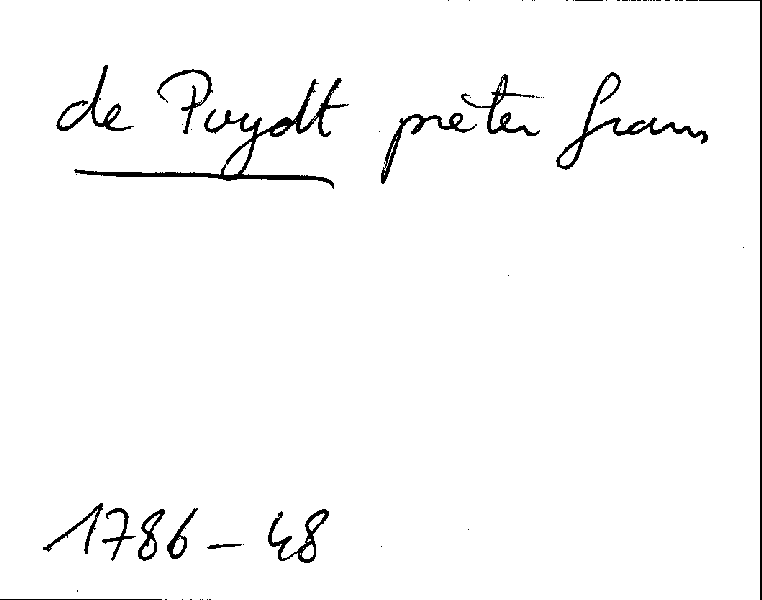 de Puydt prèter frans
1786 - 48